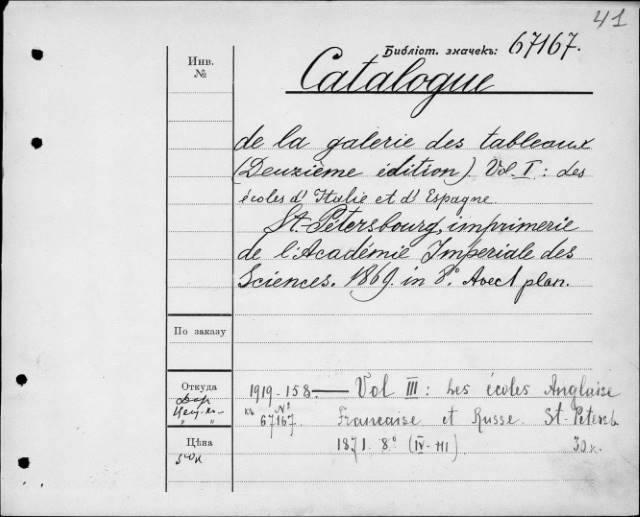 41
Библіот. значекъ: 67167.
Инв. №
Catalogue
de la galerie des tableaux
(Deuzième édition) Vol. I : des
écoles d'Italie et d'Espagne
St-Pétersbourg, imprimerie
de l'Académie Imperiale des
Sciences. 1869. in 8°. Avec 1 plan.
По заказу
Откуда
Дар
1919-158 — Vol III : Les écoles Anglaise
къ № 67167. Francaise et Russe. St-Petersb.
Цѣна
1871. 8° (IV-III)